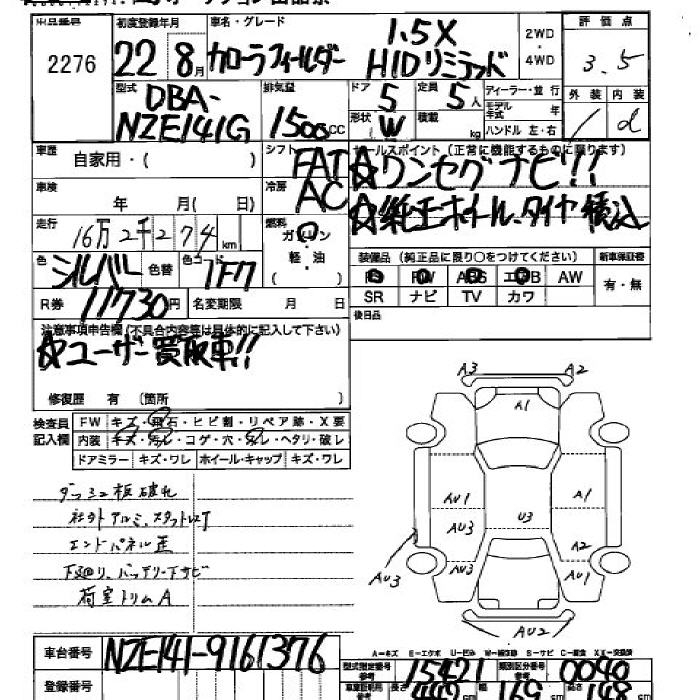 出品番号
2276
初度登録年月
22 8月
車名・グレード
カローラフィールダー
1.5X
HIDリミテッド
2WD
・
4WD
評価点
3.5
型式
DBA-
NZE141G
排気量
1500cc
ドア
5
定員
5人
形状
W
積載
kg
ディーラー・並行
モデル年式 年
ハンドル 左・右
外装 内装
d
車歴
自家用・( )
シフト
FAT
セールスポイント(正常に機能するものに限ります)
☆ワンセグナビ!!
☆純正ホイール、タイヤ積込
車検
年 月( 日)
冷房
AC
走行
16万2千274km
燃料
ガソリン
・
軽・油
( )
装備品(純正品に限り○をつけてください)
新車保証書
PS PW ABS エアB AW
SR ナビ TV カワ
有・無
色
シルバー
色替
色コード
1F7
R券
11730円
名変期限 月 日
後日品
注意事項申告欄(不具合内容等は具体的に記入して下さい)
☆ユーザー買取車!!
修復歴 有 (箇所 )
検査員
記入欄
FW キズ・飛石・ヒビ割・リペア跡・X要
内装 キズ・汚レ・コゲ・穴・スレ・ヘタリ・破レ
ドアミラー キズ・ワレ ホイール・キャップ キズ・ワレ
ダッシュ板破れ
社外アルミ、スタットレスT
エンドパネル歪
下廻り、バッテリー下サビ
荷室トリムA
A3
A2
A1
AU1
A1
AU3
U3
A2
AU3
AU1
AU2
A－キズ E－エクボ U－凹み W－補修跡 S－サビ C－腐食 XX－交換済
車台番号
NZE141-9161376
登録番号
型式指定番号
参考
15421
類別区分番号
参考
0040
長さ
cm
169
cm
高さ
148
cm